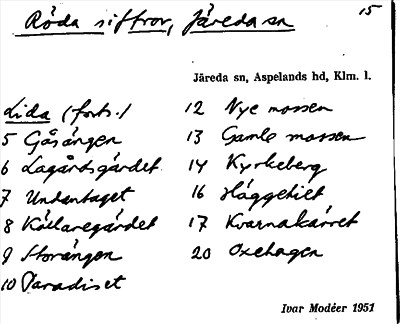 Röda siffror, Järeda sn
15
Järeda sn, Aspelands hd, Klm. l.
Lida (forts.)
5 Gåsängen
6 Lagårdsgärdet
7 Undantaget
8 Källaregärdet
9 Storängen
10 Paradiset
12 Nye mossen
13 Gamle mossen
14 Kyrkeberg
16 Häggetiet
17 Kvarnakärret
20 Oxehagen
Ivar Modéer 1951